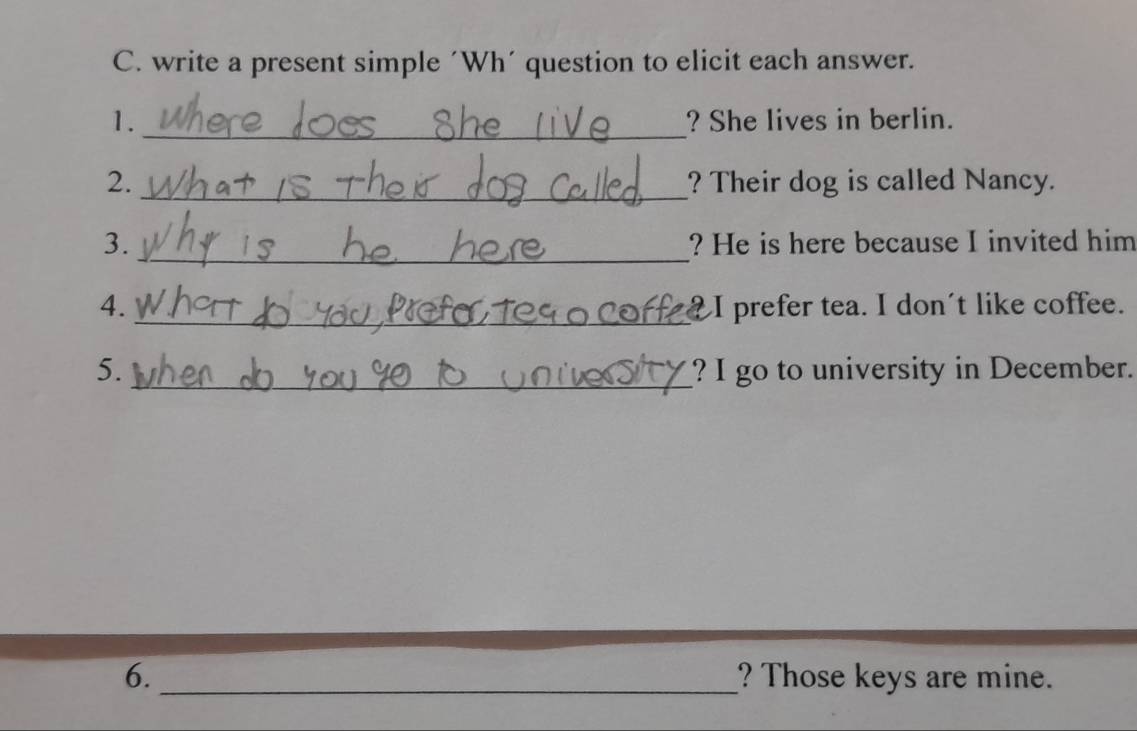 C. write a present simple ´Wh´ question to elicit each answer.
1. Where does She live ? She lives in berlin.
2. What is Their dog Called ? Their dog is called Nancy.
3. Why is he here ? He is here because I invited him
4. What do you, Prefer, Tea o coffee? I prefer tea. I don´t like coffee.
5. When do you go to university ? I go to university in December.
6. ? Those keys are mine.